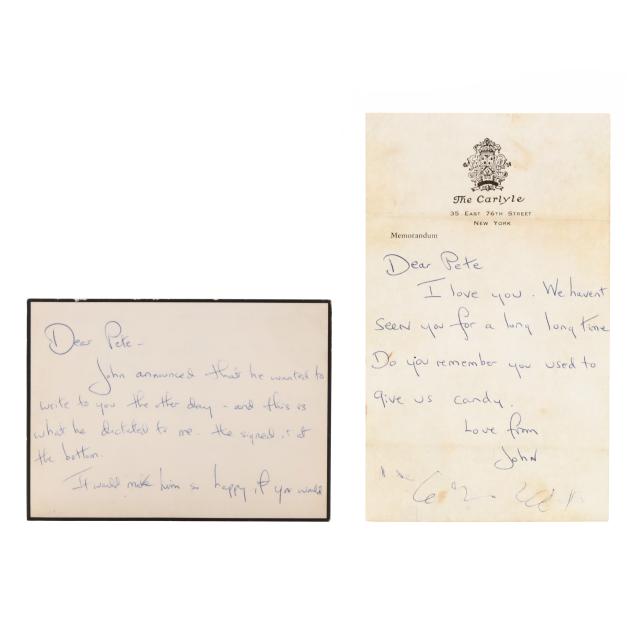 Dear Pete -
John announced that he wanted to
write to you the other day - and this is
what he dictated to me. He signed it at
the bottom.
It would make him so happy if you would
The Carlyle
35 EAST 76TH STREET
NEW YORK
Memorandum
Dear Pete
I love you. We havent
seen you for a long long time
Do you remember you used to
give us candy.
Love from
John